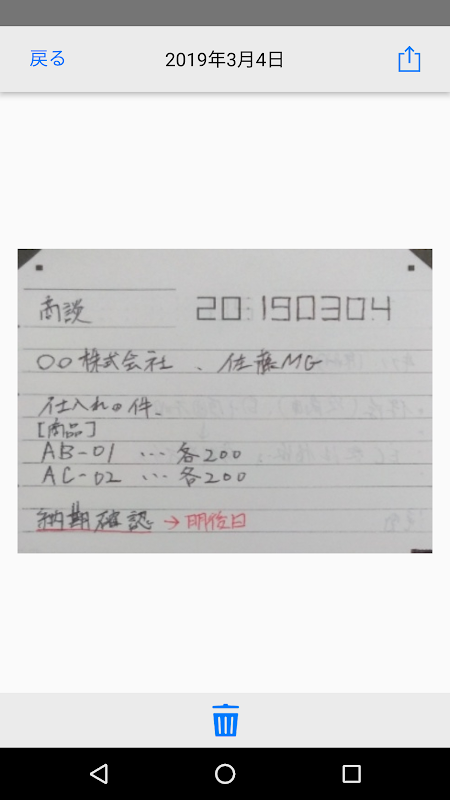 戻る 2019年3月4日
商談 20190304
〇〇株式会社、佐藤MG
仕入れの件、
[商品]
AB-01 … 各200
AC-02 … 各200
納期確認 → 明後日